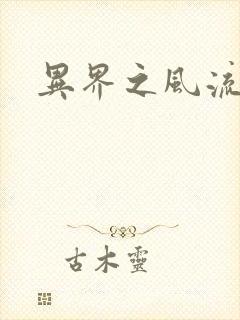 異界之風流
古木靈